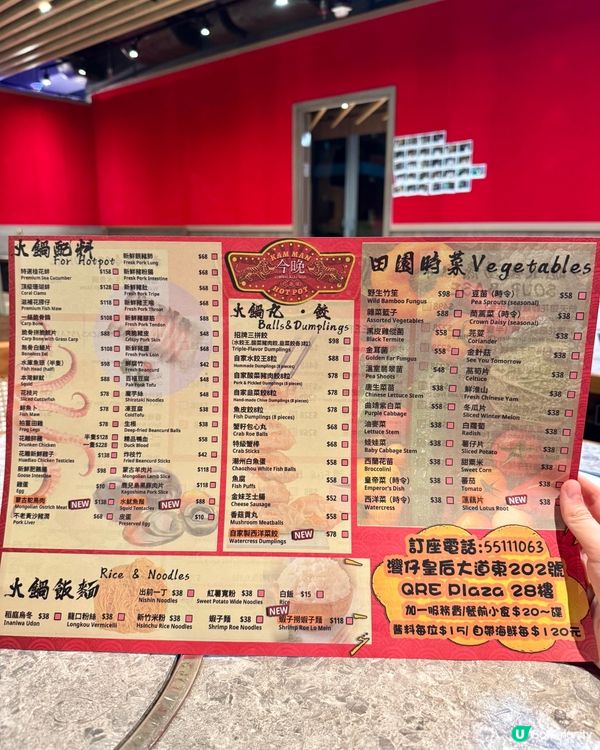 火鍋配料
For Hotpot
特選桂花蚌 $158
Premium Sea Cucumber
頂級珊瑚蚌 $128
Coral Clams
滋補花膠仔 $118
Premium Fish Maw
$108
Carp Bone
$118
Carp Bone with Grass Carp
Boneless Eel
水庫魚頭（半隻） $98
Fish Head (half)
Squid
花枝片
Sliced Cuttlefish
鮮魚卜
Fish Maw
Prawns
花雕醉雞 半隻$128
Drunken Chicken 一隻$228
花雕新鮮雞子 $138
Huadiao Chicken Testicles
新鮮肥鵝腸 $98
Goose Intestine
雞蛋 $10
Egg
蒙古蛇馬肉 NEW $138
Mongolian Ostrich Meat
不老黃沙豬潤 $68
Pork Liver
新鮮豬肺 $68
Fresh Pork Lung
新鮮豬粉腸 $68
Fresh Pork Intestine
新鮮豬肚 $68
Fresh Pork Tripe
新鮮豬王喉 $68
Fresh Pork Throat
新鮮豬腳筋 $88
Fresh Pork Tendon
爽脆豬皮 $68
Crispy Pork Skin
新鮮豬腰 $68
Fresh Pork Loin
鮮腐竹 $42
Fresh Beancurd
百福豆腐 $48
Pak Fook Tofu
魔芋絲 $48
Shirataki Noodles
凍豆腐 $38
ColdTofu
生根 $38
Deep-fried Beancurd Balls
嫩品鴨血 $58
Duck Blood
炸枝竹 $42
Fried Beancurd Sticks
蒙古羊肉片 $118
Mongolian Lamb Slice
鹿兒島黑豚肉片 $118
Kagoshima Pork Slice
水魷魚鬚 NEW $88
Squid Tentacles
皮蛋 $10
Preserved Egg
KAM MAN
今晚
HOT POT
火鍋丸 · 餃
Balls&Dumplings
招牌三拼餃
$98
Triple-Flavor Dumplings
自家水餃王8粒 $88
Handmade Dumplings (8 pieces)
自家酸菜豬肉餃8粒 $88
Pork & Pickled Dumplings (8 pieces)
自家韭菜餃8粒 $88
Hand-made Chive Dumplings (8 pieces)
魚皮餃8粒 $78
Fish Dumplings (8 pieces)
蟹籽包心丸 $88
Crab Roe Balls
特級蟹棒 $68
Crab Sticks
潮州白魚蛋 $68
Chaozhou White Fish Balls
魚腐 $58
Fish Puffs
金妹芝士腸 $52
Cheese Sausage
香菇貢丸 $58
Mushroom Meatballs
自家製西洋菜餃 NEW $78
Watercress Dumplings
田園時菜Vegetables
野生竹笙 $98
Wild Bamboo Fungus
雜菜籃子 $88
Assorted Vegetables
黑皮雞縱菌 $58
Black Termite
金耳菌 $58
Golden Ear Fungus
溫室翡翠苗 $58
Pea Shoots
唐生菜苗 $38
Chinese Lettuce Stem
$38
Purple Cabbage
油麥菜 $38
Lettuce Stem
娃娃菜 $38
Baby Cabbage Stem
西蘭花苗 $38
Broccolini
皇帝菜（時令） $38
Emperor's Dish
西洋菜（時令） $38
Watercress
豆苗（時令） $58
Pea Sprouts (seasonal)
茼蒿菜（時令） $58
Crown Daisy (seasonal)
芫茜 $38
Coriander
金針菇 $38
See You Tomorrow
萵筍片 $38
Celtuce
鮮淮山 $38
Fresh Chinese Yam
冬瓜片 $38
Sliced Winter Melon
白蘿蔔 $38
Radish
薯仔片 $38
Sliced Potato
甜粟米 $38
Sweet Corn
蕃茄 $38
Tomato
蓮藕片 NEW $38
Sliced Lotus Root
火鍋飯麵
Rice & Noodles
出前一丁 $38
Nishin Noodles
紅薯寬粉 $38
Sweet Potato Wide Noodles
白飯 $15
Rice
稻庭烏冬 $38
Inaniwa Udon
龍口粉絲 $38
Longkou Vermicelli
新竹米粉 $38
Hsinchu Rice Noodles
蝦子麵 $38
Shrimp Roe Noodles
NEW
蝦子撈蝦子麵 $118
Shrimp Roe Lo Mein
訂座電話:55111063
灣仔皇后大道東202號
QRE Plaza 28樓
加一服務費/餐前小食$20~碟
醬料每位$15/自帶海鮮每$120元